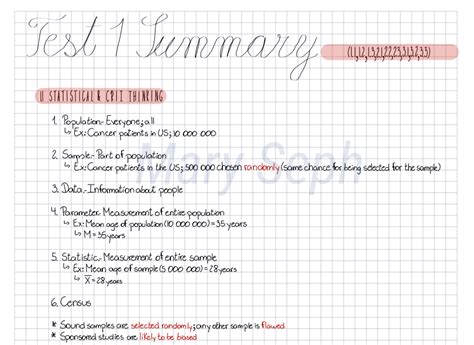 Test 1 Summary
(1.1,1.2,1.3,2.1,2.2,2.3,3.1,3.2,3.3)
1.1 STATISTICAL & CRITI THINKING
1. Population:- Everyone; all
↳ Ex: Cancer patients in US; 10 000 000
2. Sample:- Part of population
↳ Ex: Cancer patients in the US; 500 000 chosen randomly (same chance for being selected for the sample)
Mary Seph
3. Data:- Information about people
4. Parameter: Measurement of entire population
↳ Ex: Mean age of population (10 000 000) = 35 years
↳ M = 35 years
5. Statistic:- Measurement of entire sample
↳ Ex: Mean age of sample (5 000 000) = 28 years
↳ X̄ = 28 years
6. Census
* Sound samples are selected randomly; any other sample is flawed
* Sponsored studies are likely to be biased